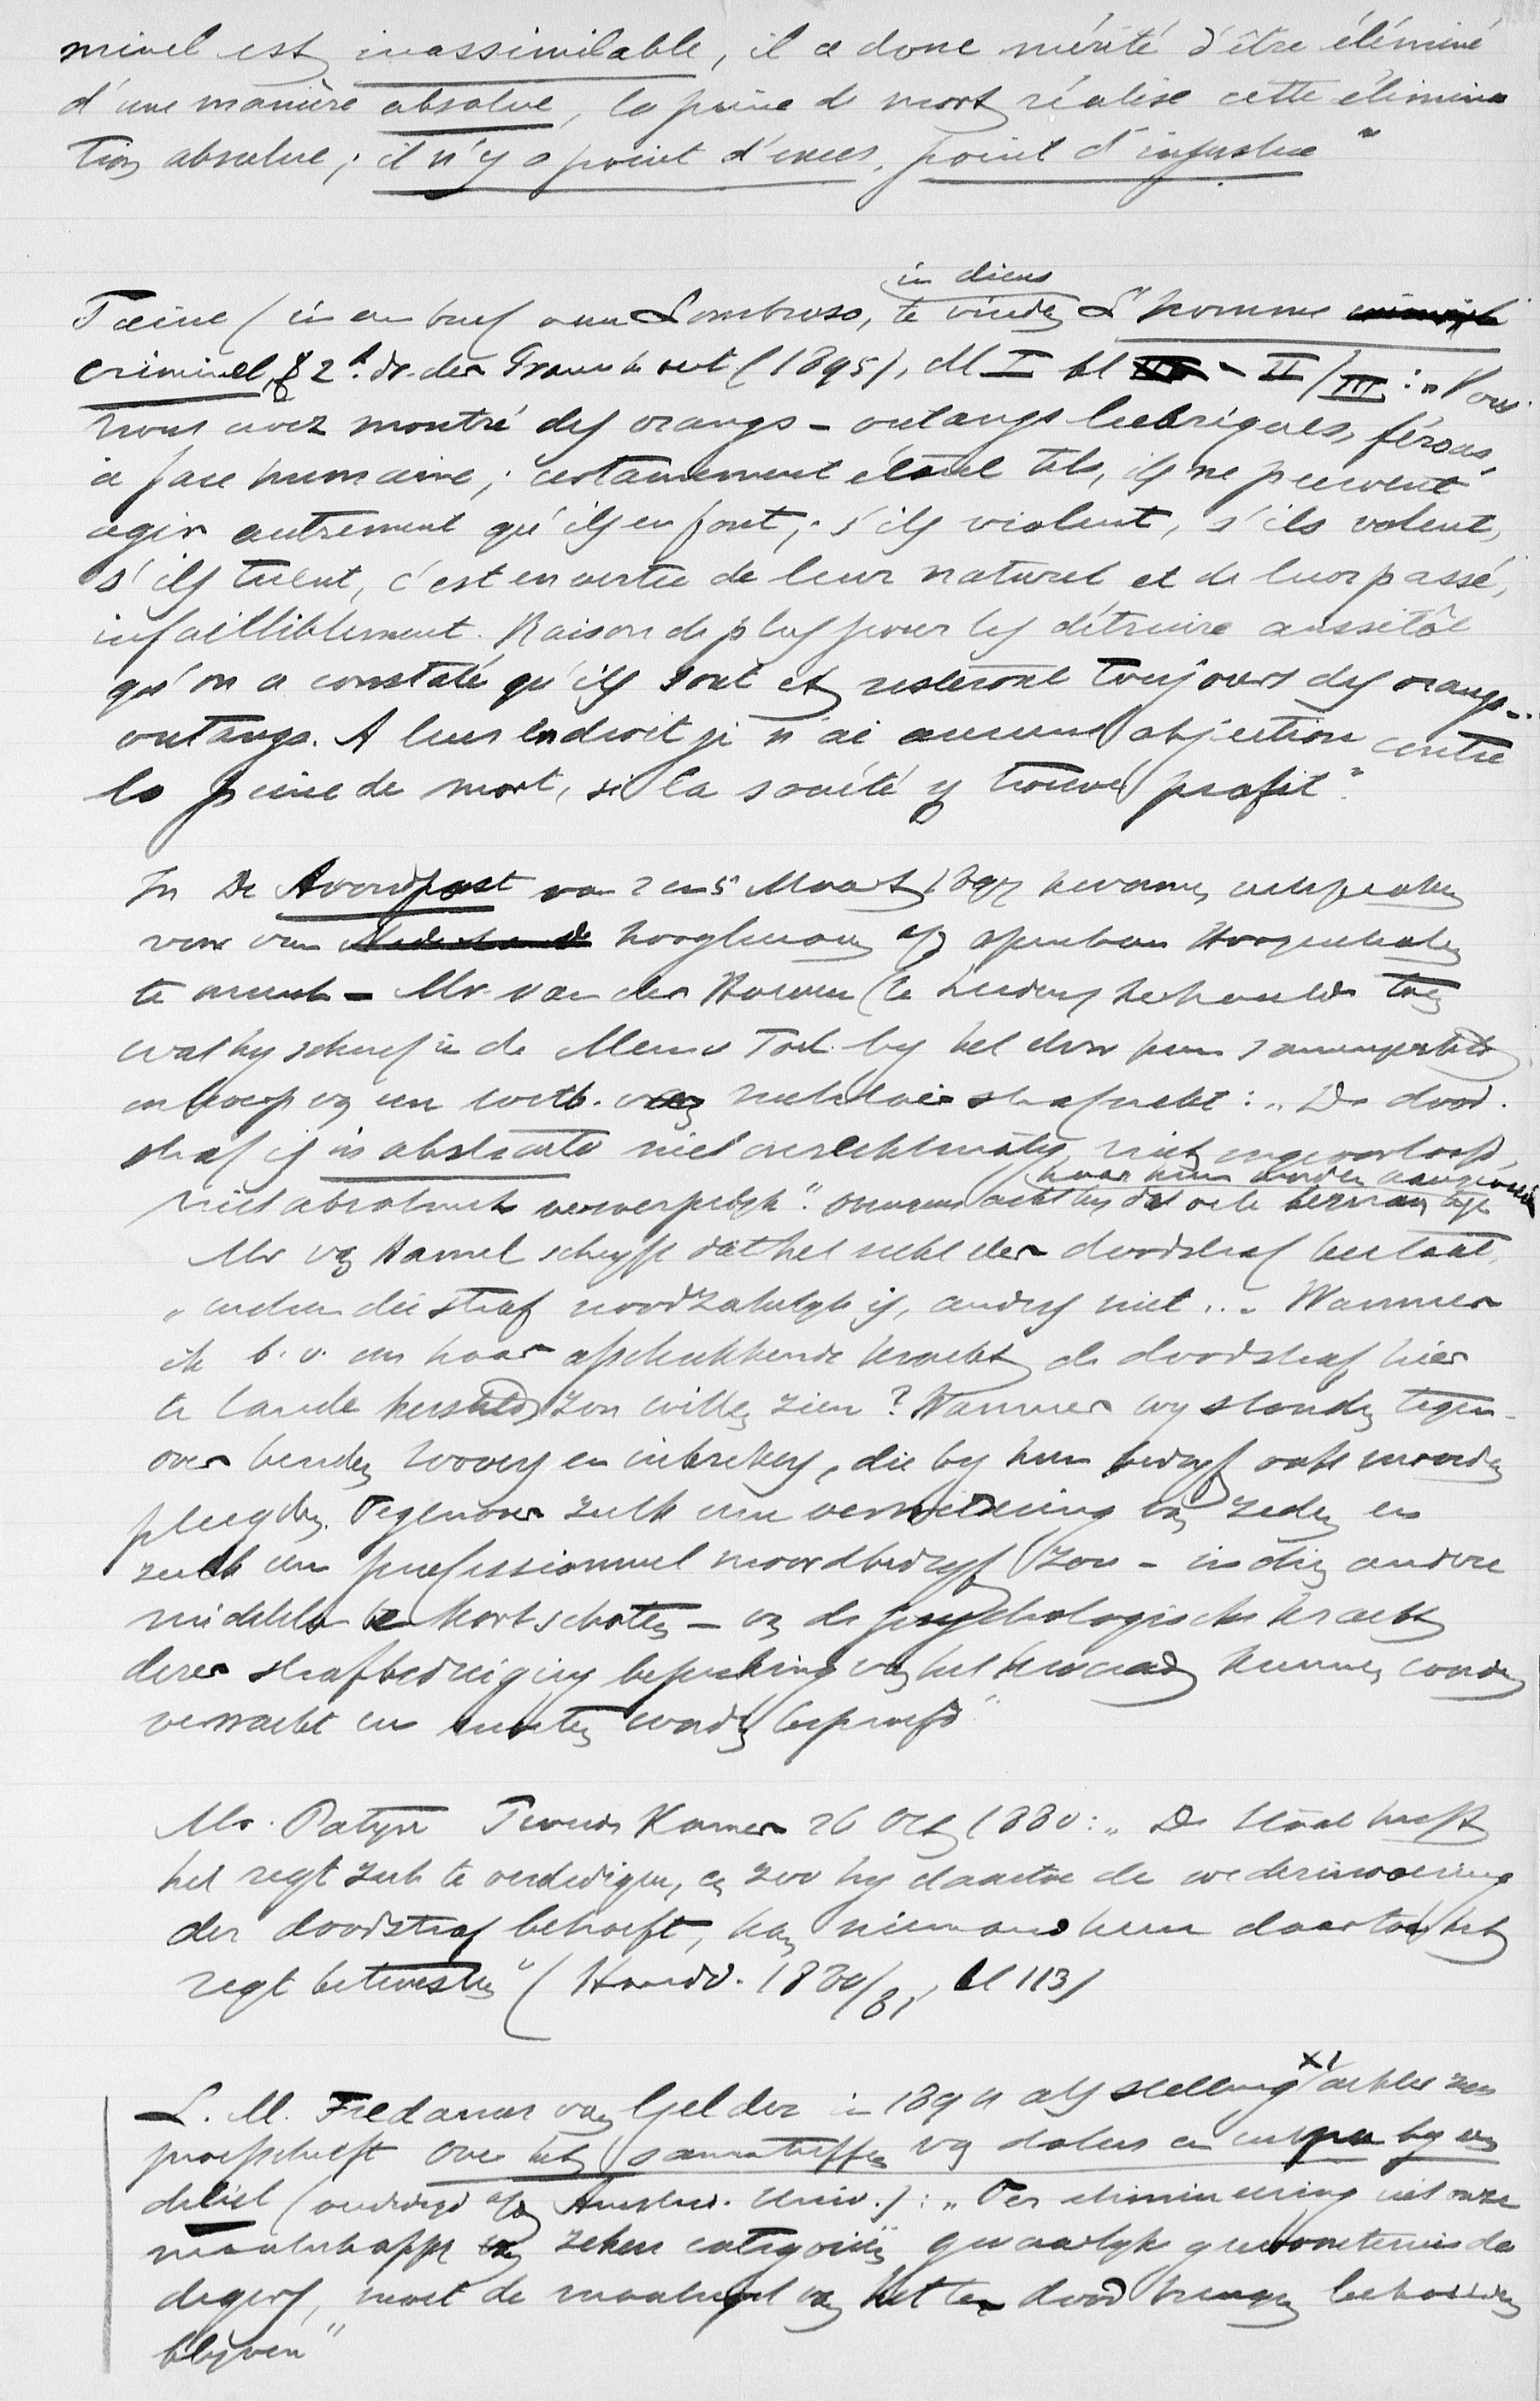 minel est inassimilable, il a donc mérité d'être éliminé
d'une manière absolue, la peine de mort réalise cette élimina
tion absolue; il n'y a point d'excès, point d'injustice"
Taine (in een brief aan Lombroso, te vinden in diens L'homme
criminel, 2e dr. der Fransche uit (1895), dl I bl II/III: "Vous
nous avez montré des orangs-outangs lubriques, féroces,
à face humaine; certainement étant tels, ils ne peuvent
agir autrement qu'ils en font; s'ils violent, s'ils volent,
s'ils tuent, c'est en vertu de leur naturel et de leur passé,
infailliblement. Raison de plus pour les détruire aussitôt
qu'on a constaté qu'ils sont et resteront toujours des orangs-
outangs. A leur endroit je n'ai aucune objection contre
la peine de mort, si la société y trouve profit".
In De Avondpost van 2 en 5 Maart 1897 uitspraken
voor van hoogleeraren
te - Mr. van der Hoeven (te Leiden)
wat hij schreef in de Memo Toel. bij het door hem samengestelde
ontwerp van een wetb. van militair strafrecht: "De dood-
straf is in abstracto niet onrechtmatig, niet ongeoorloofd,
niet absoluut verwerpelijk". acht hij dat vele bezwaren tegen haar kunnen worden aangevoerd
Mr van Hamel schrijft dat het recht der doodstraf bestaat,
"indien die straf noodzakelijk is, anders niet ... Wanneer
ik b.v. om haar afschrikkende kracht de doodstraf hier
te lande hersteld zou willen zien? Wanneer wij stonden tegen-
over benden roovers en inbrekers, die bij hun bedrijf ook moorden
pleegden. Tegenover zulk een verwildering van zeden en
zulk een professionneel moordbedrijf zou - indien andere
middelen te kort schoten - van de psychologische kracht
dezer strafbedreiging beperking van het kwaad kunnen worden
verwacht en moeten worden beproefd"
Mr. Patijn Tweede Kamer 26 Oct 1880: "De Staat heeft
het regt zich te verdedigen, en zoo hij daartoe de wederinvoering
der doodstraf behoeft, kan niemand hem daartoe het
regt betwisten" (Handd. 1880/81, bl 113)
L. M. van Gelder in 189 als stelling XI achter zijn
proefschrift Over het samentreffen van dolus en culpa bij een
delict (verdedigd a/d Amsterd. Univ.): "Ter elimineering uit onze
maatschappij van zekere categorieën gevaarlijke gewoontemisda
digers, moet de maatregel van het ter dood brengen behouden
blijven"